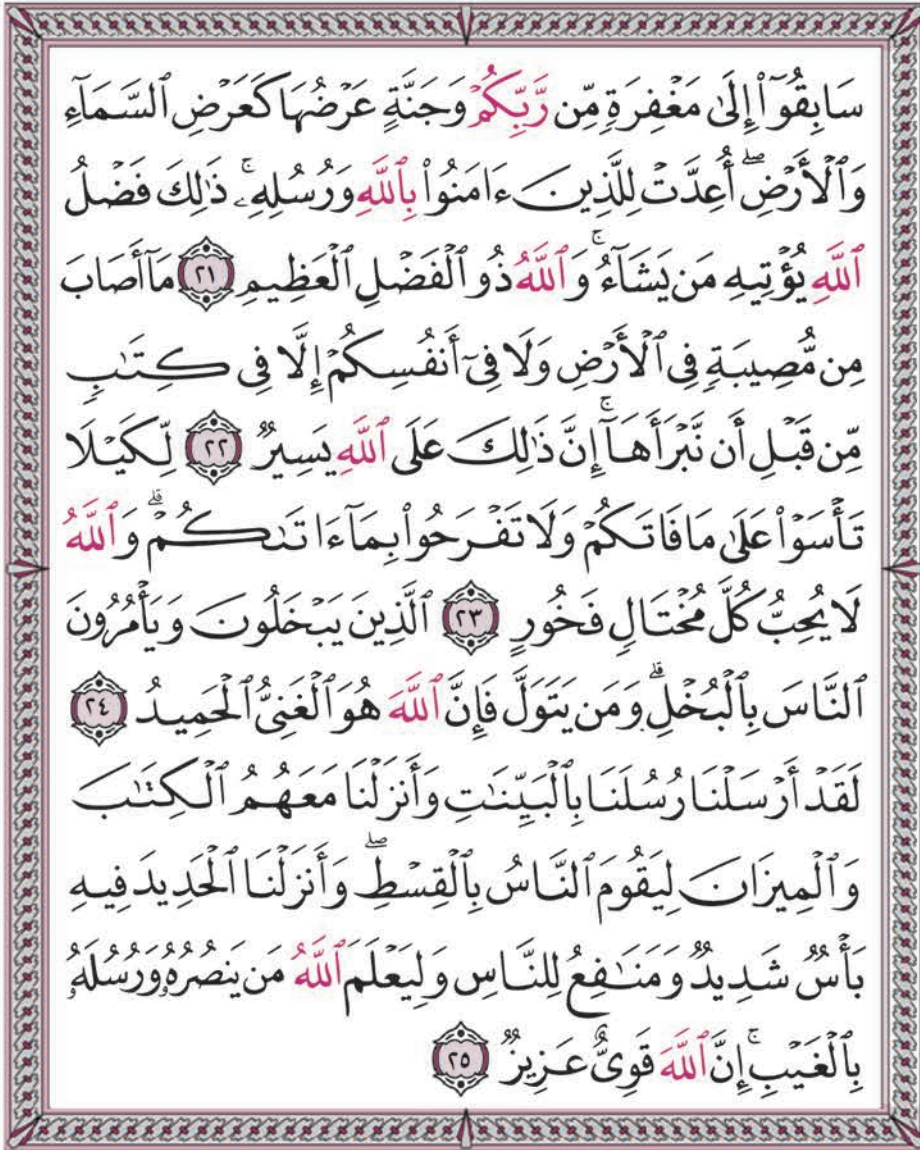 سَابِقُوٓا۟ إِلَىٰ مَغْفِرَةٍ مِّن رَّبِّكُمْ وَجَنَّةٍ عَرْضُهَا كَعَرْضِ ٱلسَّمَآءِ
وَٱلْأَرْضِ ۖ أُعِدَّتْ لِلَّذِينَ ءَامَنُوا۟ بِٱللَّهِ وَرُسُلِهِۦ ۚ ذَٰلِكَ فَضْلُ
ٱللَّهِ يُؤْتِيهِ مَن يَشَآءُ ۚ وَٱللَّهُ ذُو ٱلْفَضْلِ ٱلْعَظِيمِ ٢١ مَآ أَصَابَ
مِن مُّصِيبَةٍ فِى ٱلْأَرْضِ وَلَا فِىٓ أَنفُسِكُمْ إِلَّا فِى كِتَٰبٍ
مِّن قَبْلِ أَن نَّبْرَأَهَآ ۚ إِنَّ ذَٰلِكَ عَلَى ٱللَّهِ يَسِيرٌ ٢٢ لِّكَيْلَا
تَأْسَوْا۟ عَلَىٰ مَا فَاتَكُمْ وَلَا تَفْرَحُوا۟ بِمَآ ءَاتَىٰكُمْ ۗ وَٱللَّهُ
لَا يُحِبُّ كُلَّ مُخْتَالٍ فَخُورٍ ٢٣ ٱلَّذِينَ يَبْخَلُونَ وَيَأْمُرُونَ
ٱلنَّاسَ بِٱلْبُخْلِ ۗ وَمَن يَتَوَلَّ فَإِنَّ ٱللَّهَ هُوَ ٱلْغَنِىُّ ٱلْحَمِيدُ ٢٤
لَقَدْ أَرْسَلْنَا رُسُلَنَا بِٱلْبَيِّنَٰتِ وَأَنزَلْنَا مَعَهُمُ ٱلْكِتَٰبَ
وَٱلْمِيزَانَ لِيَقُومَ ٱلنَّاسُ بِٱلْقِسْطِ ۖ وَأَنزَلْنَا ٱلْحَدِيدَ فِيهِ
بَأْسٌ شَدِيدٌ وَمَنَٰفِعُ لِلنَّاسِ وَلِيَعْلَمَ ٱللَّهُ مَن يَنصُرُهُۥ وَرُسُلَهُۥ
بِٱلْغَيْبِ ۚ إِنَّ ٱللَّهَ قَوِىٌّ عَزِيزٌ ٢٥